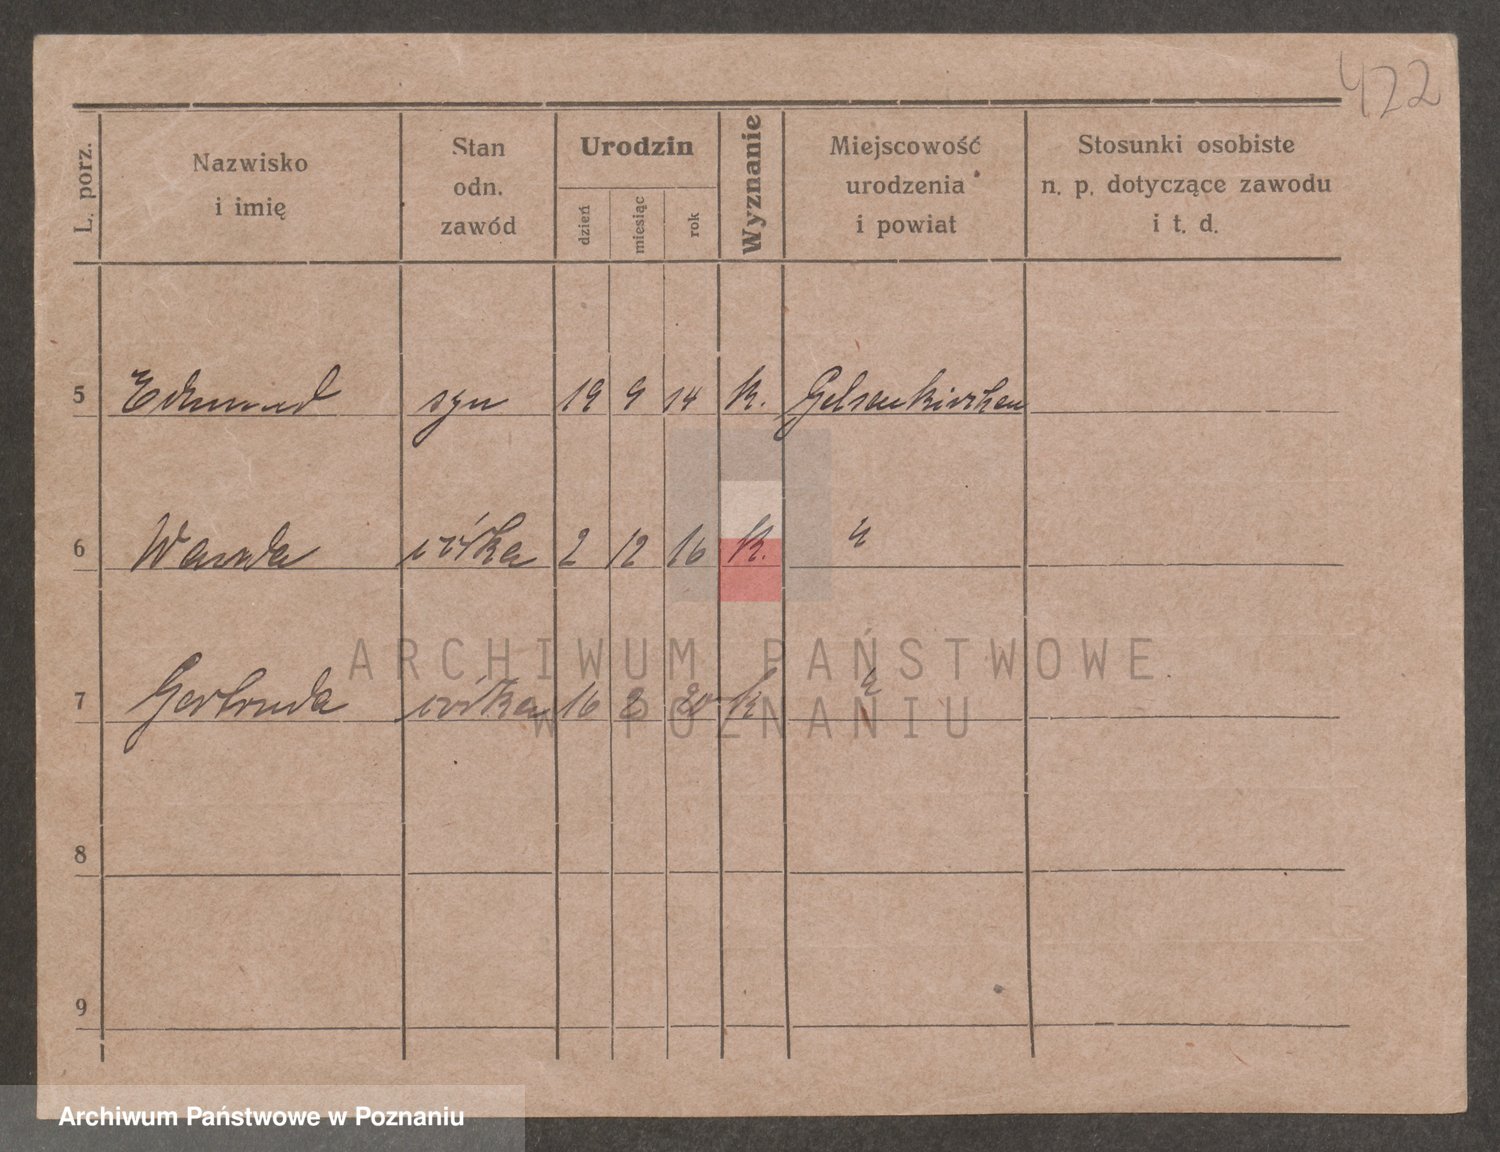 422
L. porz. Nazwisko i imię Stan odn. zawód Urodzin dzień miesiąc rok Wyznanie Miejscowość urodzenia i powiat Stosunki osobiste n. p. dotyczące zawodu i t. d.
5 Edmund syn 19 9 14 K. Gelsenkirchen
6 Wanda córka 2 12 16 K. "
7 Gertruda córka 16 2 20 K "
8
9
ARCHIWUM PAŃSTWOWE
W POZNANIU
Archiwum Państwowe w Poznaniu